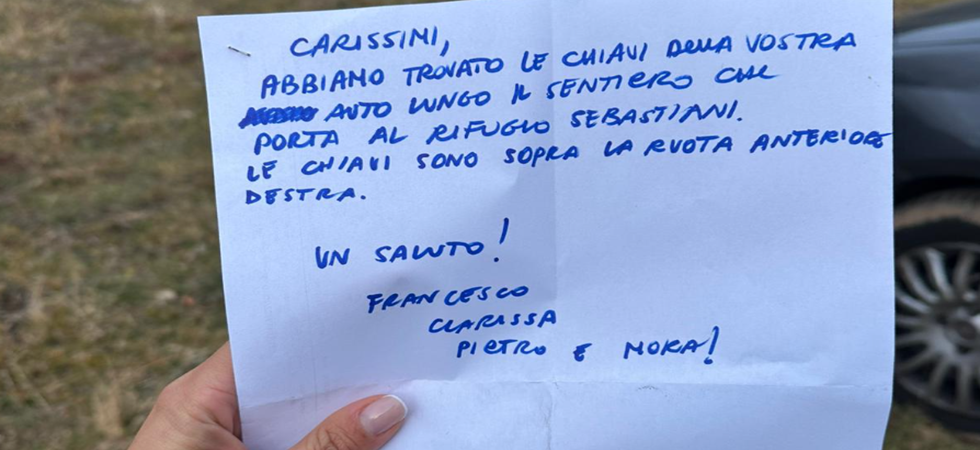 CARISSIMI,
ABBIAMO TROVATO LE CHIAVI DELLA VOSTRA
AUTO LUNGO IL SENTIERO CHE
PORTA AL RIFUGIO SEBASTIANI.
LE CHIAVI SONO SOPRA LA RUOTA ANTERIORE
DESTRA.
UN SALUTO!
FRANCESCO
CLARISSA
PIETRO E NORA!